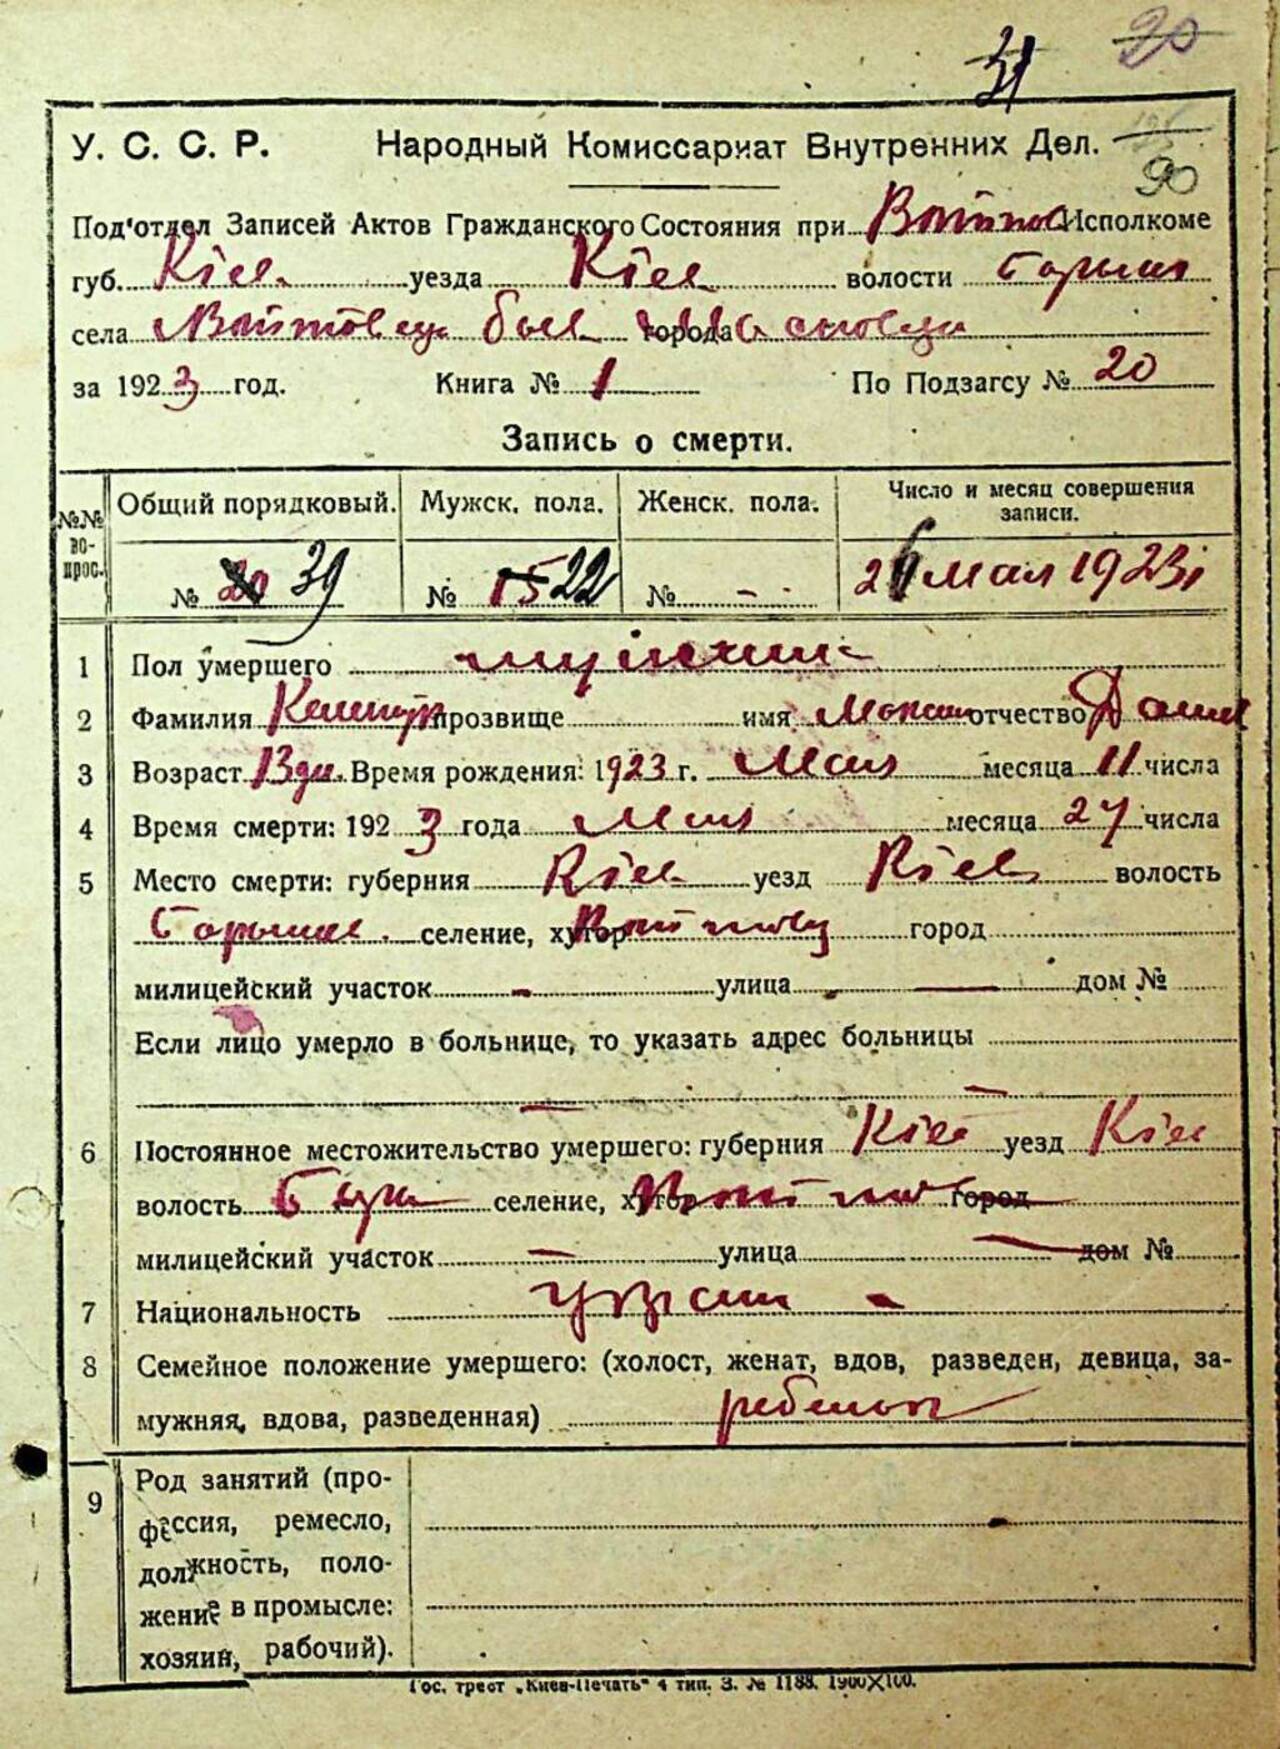 31 20
У. С. С. Р. Народный Комиссариат Внутренних Дел.
90
Под'отдел Записей Актов Гражданского Состояния при Войтов Исполкоме
губ. Кіев. уезда Кіев волости Барышев
села Войтовцы быв города
за 1923 год. Книга № 1 По Подзагсу № 20
Запись о смерти.
№№ вопрос. Общий порядковый. Мужск. пола. Женск. пола. Число и месяц совершения записи.
№ 20 39 № 15 22 № - 26 мая 1923
1 Пол умершего мужской
2 Фамилия прозвище имя Максим отчество Данил
3 Возраст 13 дн. Время рождения: 1923 г. Мая месяца 11 числа
4 Время смерти: 1923 года Мая месяца 24 числа
5 Место смерти: губерния Кіев уезд Кіев волость
Барышев. селение, хутор Войтовцы город
милицейский участок - улица — дом №
Если лицо умерло в больнице, то указать адрес больницы
— —
6 Постоянное местожительство умершего: губерния Кіев уезд Кіев
волость Бары селение, хутор Войтов город
милицейский участок — улица — дом №
7 Национальность украин -
8 Семейное положение умершего: (холост, женат, вдов, разведен, девица, за-
мужняя, вдова, разведенная) ребенок
9 Род занятий (про-
фессия, ремесло,
должность, поло-
жение в промысле:
хозяин, рабочий).
Гос. трест „Киев-Печать" 4 тип. З. № 1188. 1900X100.